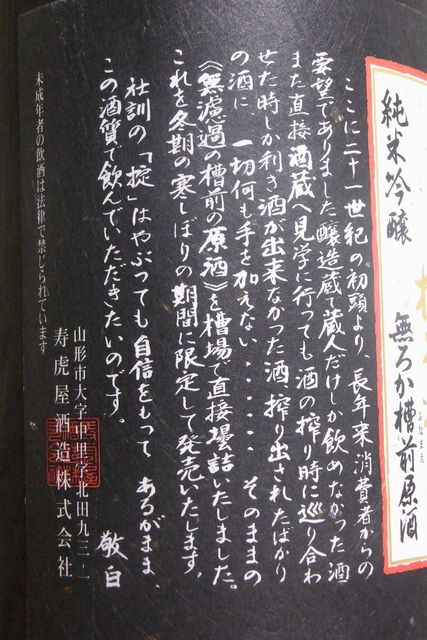 純米吟醸
無ろか槽前原酒
ふなまえ
ここに二十一世紀の初頭より、長年来消費者からの
要望でありました醸造蔵で蔵人だけしか飲めなかった酒
また直接酒蔵へ見学に行っても酒の搾り時に巡り合わ
せた時しか利き酒が出来なかった酒、搾り出されたばかり
の酒に 一切何も手を加えない・・・・・そのままの
《無濾過の槽前の原酒》を槽場で直接壜詰いたしました。
これを冬期の寒しぼりの期間に限定して発売いたします。
社訓の「掟」はやぶっても自信をもって あるがまま、
この酒質で飲んでいただきたいのです。
敬白
山形市大字中里字北田九三ー一
寿虎屋酒造株式会社
未成年者の飲酒は法律で禁じられています